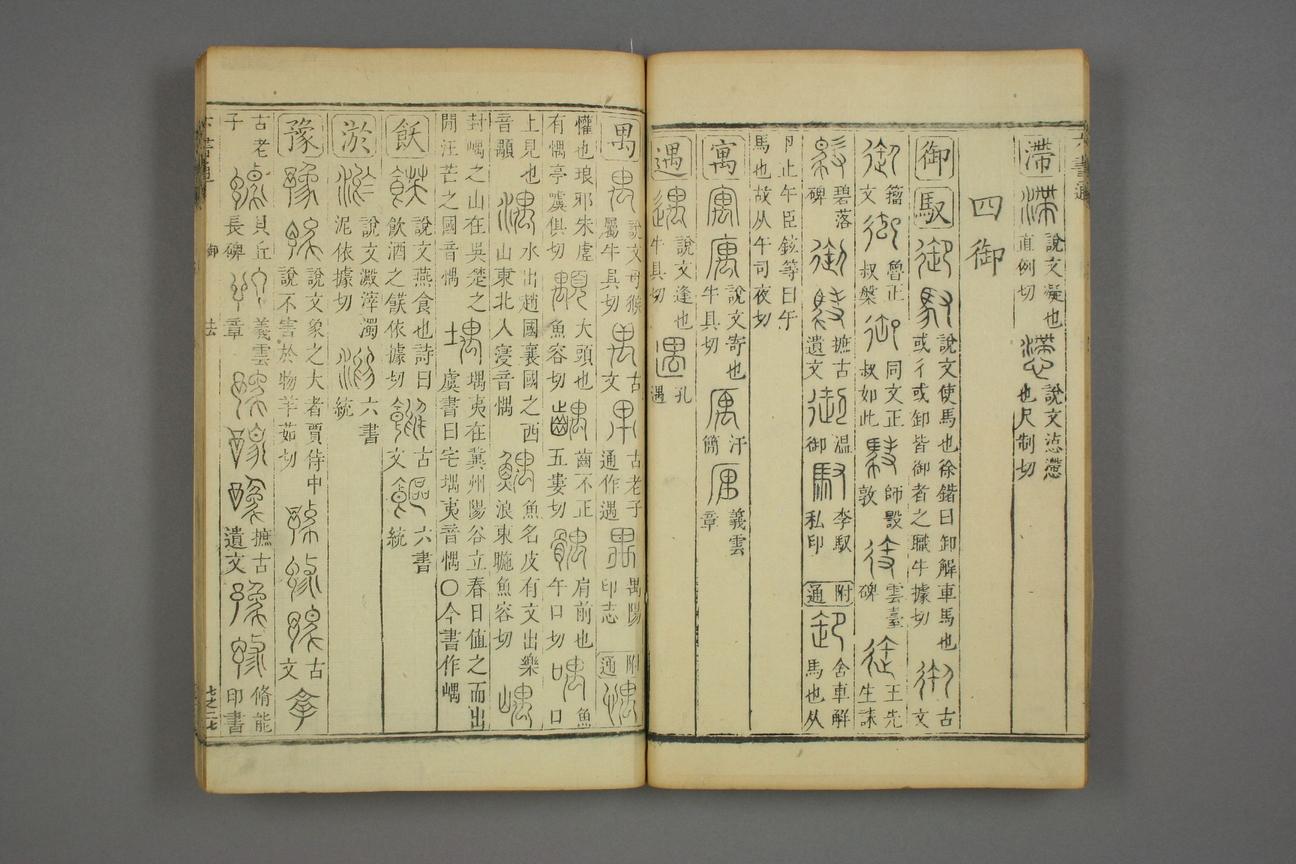 滯 說文凝也直例切 說文㳴懘也尺制切
四御
御 馭 說文使馬也徐鍇曰卸解車馬也或彳或卸皆御者之職牛據切 古文
籀文 魯正叔槃 同文正叔如此 師㲃敦 雲臺碑 王先生誄
碧落碑 摭古遺文 温御 李馭私印 附通 舍車解馬也从
卩止午臣鉉等曰午
馬也故从午司夜切
寓 說文寄也牛具切 汗簡 義雲章
遇 說文逢也牛具切 孔遇
六書通
禺 說文母猴屬牛具切 古文 古老子通作遇 禺陽印志 附通
懽也琅邪朱虛有㥥亭虞俱切 大頭也魚容切 齒不正五婁切 肩前也午口切 魚口
上見也音顒 水出趙國襄國之西山東北人寖音㥥 魚名皮有文出樂浪東暆魚容切
封嵎之山在吳楚之閒汪芒之國音㥥 堣夷在冀州陽谷立春日值之而出虞書曰宅堣夷音㥥○今書作嵎
飫 說文燕食也詩曰飲酒之䬧依據切 古文 六書統
淤 說文澱滓濁泥依據切 六書統
豫 說文象之大者賈侍中說不害於物羊茹切 古文
古老子 貝丘長碑 義雲章 摭古遺文 脩能印書
御
去
七之二七